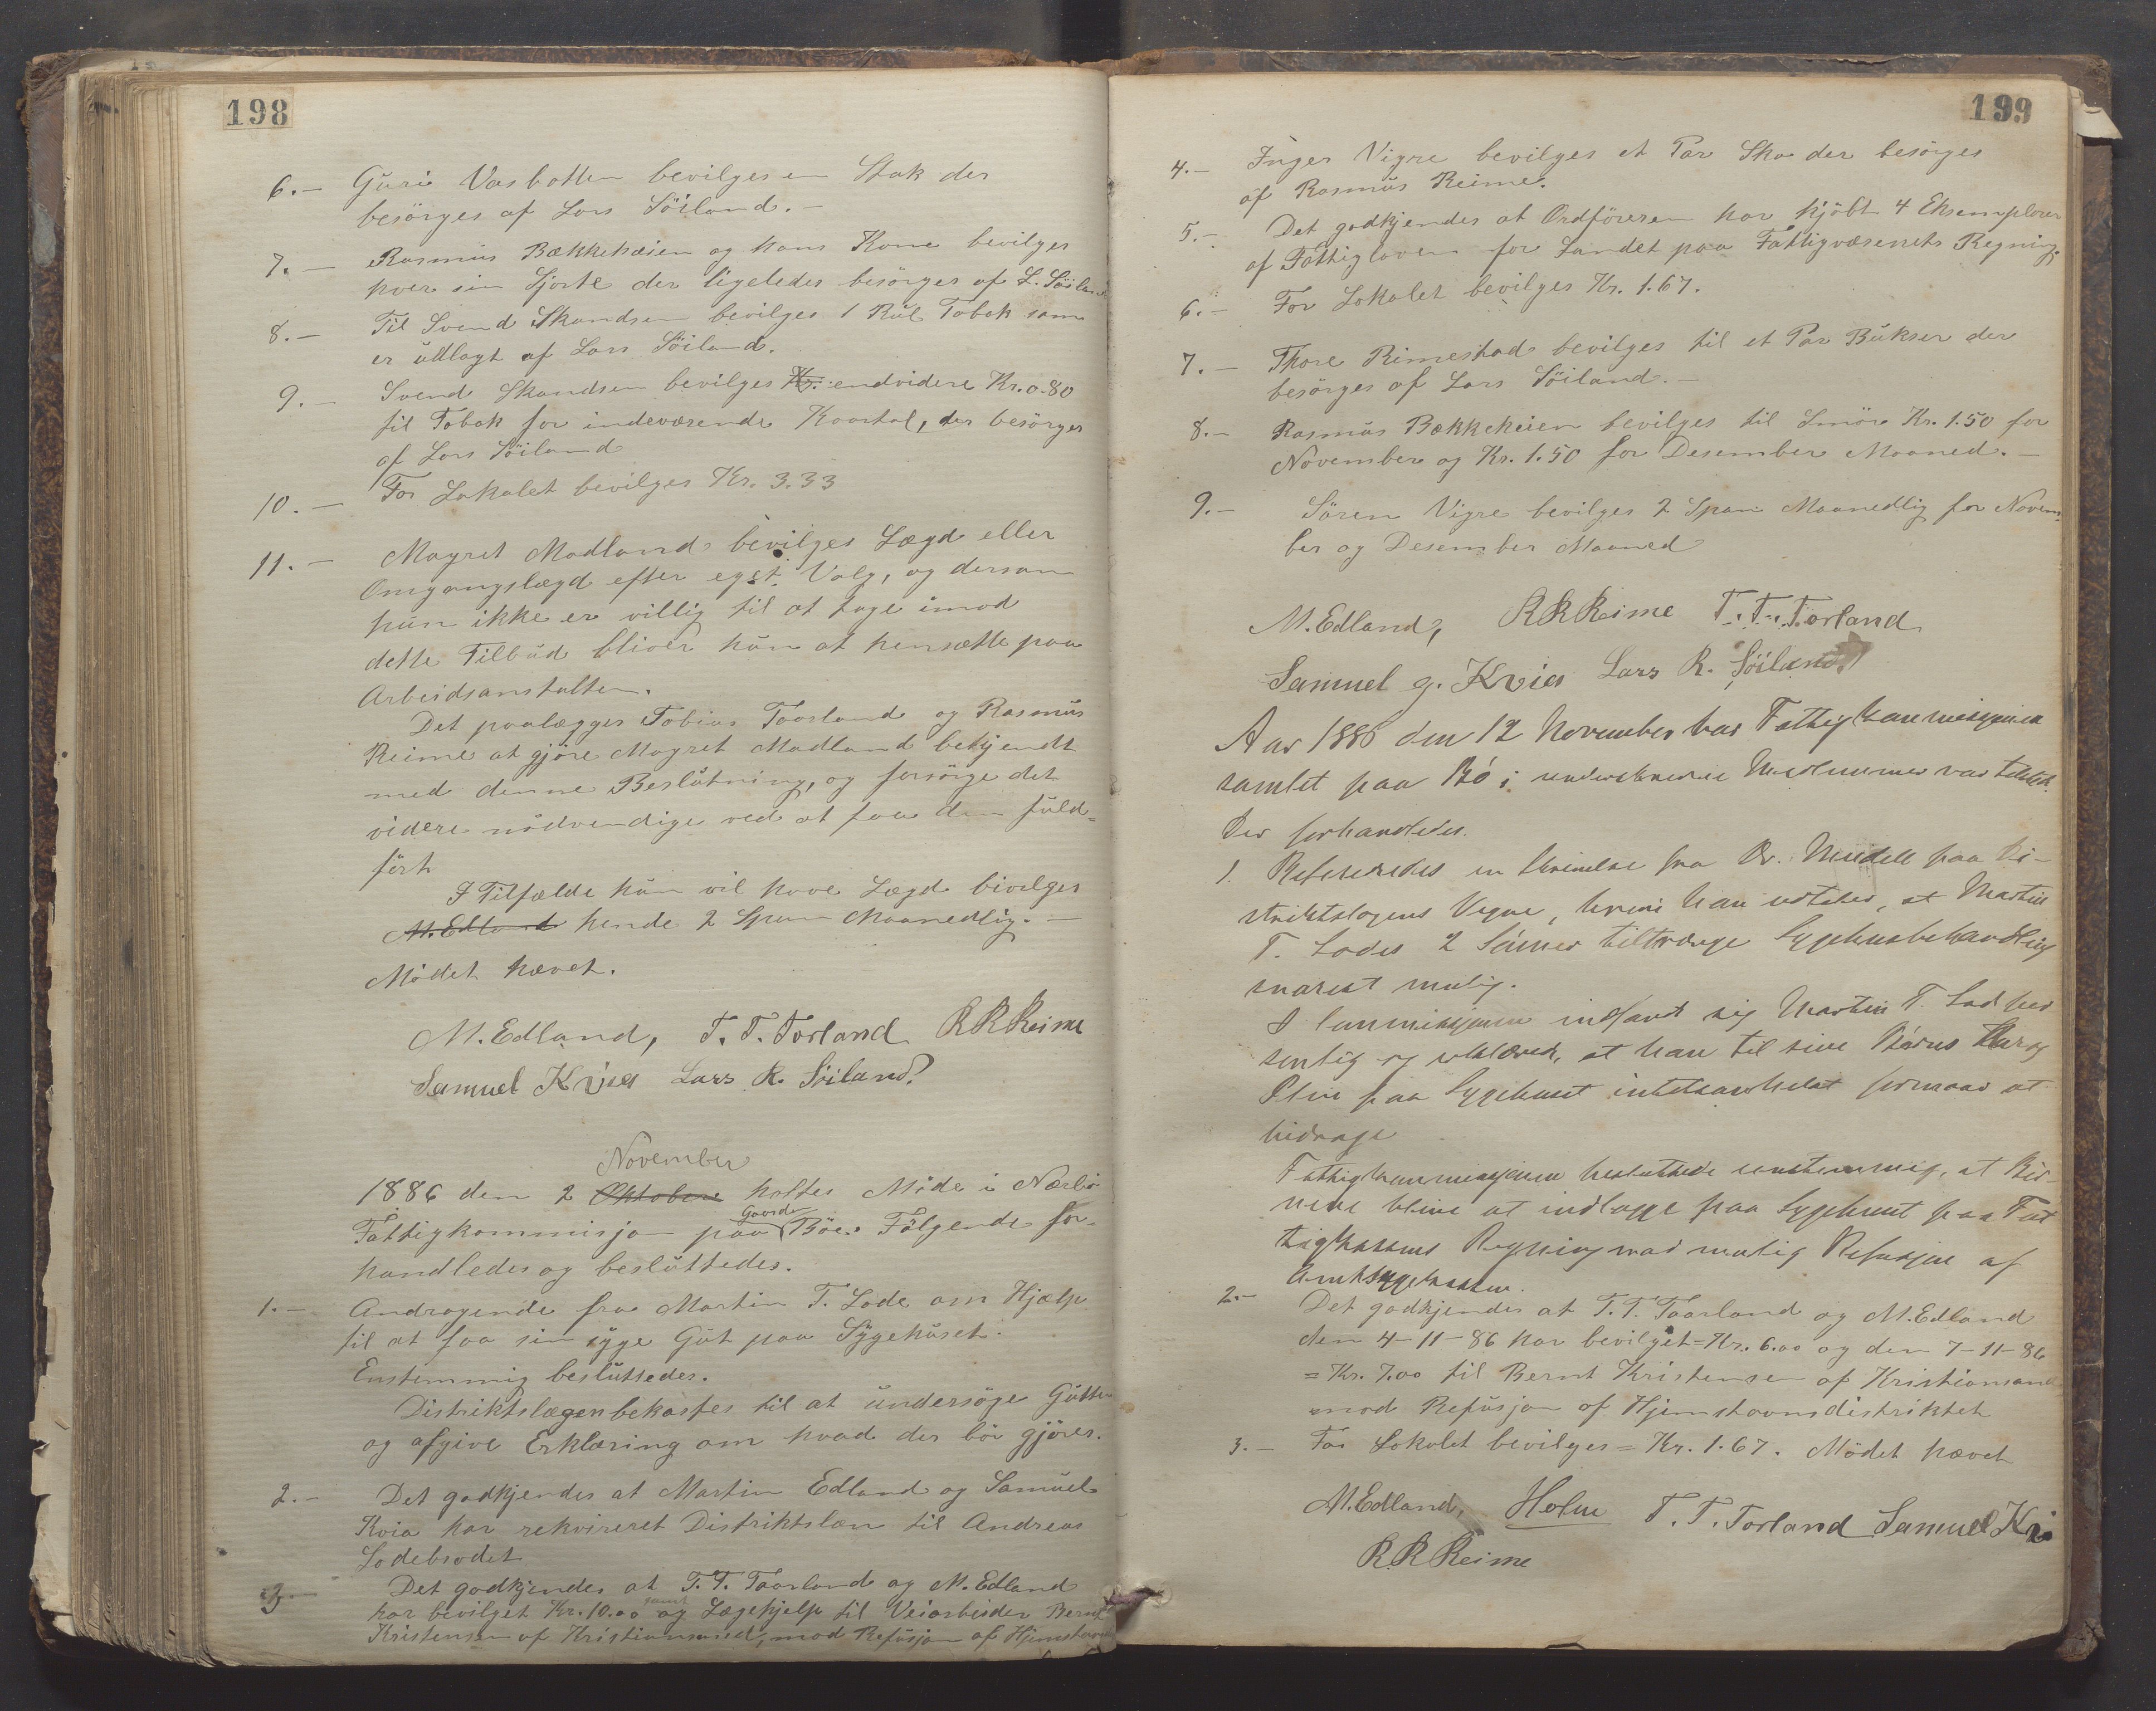 198
6.- Guri Vasbotten bevilges en Stak der
besörges af Lars Söiland.-
7.- Rasmus Bækkeheien og hans Kone bevilges
hver sin Sjorte der ligeledes besörges af L. Söiland
8.- Til Svend Skandsen bevilges 1 Rul Tobak som
er udlagt af Lars Söiland.
9.- Svend Skandsen bevilges Kr. endvidere Kr. 0.80
til Tobak for indeværende Kvartal, der besörges
af Lars Söiland
10.- For Lokalet bevilges Kr. 3.33
11.- Magret Madland bevilges Lægd eller
Omgangslægd efter eget Valg, og dersom
hun ikke er villig til at tage imod
dette Tilbud bliver hun at hensætte paa
Arbeidsanstalten.
Det paalægges Tobias Taarland og Rasmus
Reime at gjöre Magret Madland bekjendt
med denne Beslutning, og forsörge det
videre nödvendige ved at faa den fuld-
fört
I Tilfælde hun vil have Lægd bivelges
M. Edland hende 2 Spam Maanedlig.-
Mödet hævet.
M. Edland, T. T. Torland R R Reime
Samuel Kvia Lars R. Söiland
November
1886 den 2 Oktober holtes Möde i Nærbö
Gaarden
Fattigkommisjon paa Böe. Fölgende for-
handledes og besluttedes.
1.- Andragende fra Martin T. Lode om Hjælp
til at faa sin syge Gut paa Sygehuset.
Enstemmig besluttedes.
Distriktslægen bekostes til at undersöge Gutten
og afgive Erklæring om hvad der bör gjöres.
2.- Det godkjendes at Martin Edland og Samuel
Kvia har rekvireret Distriktslæn til Andreas
Lodebrodet
3.- Det godkjendes at T. T. Taarland og M. Edland
samt
har bevilget Kr. 10.00 og Lægehjelp til Veiarbeider Bernt
Kristensen af Kristiansand, mod Refusjon af Hjemstavns
199
4.- Inger Vigre bevilges et Par Sko der besörges
af Rasmus Reime.
5.- Det godkjendes at Ordföreren har kjöbt 4 Eksemplarer
af Fattigloven for Landet paa Fattigvæsenets Regning.
6.- For Lokalet bevilges Kr. 1.67.
7.- Thore Rimestad bevilges til et Par Bukser der
besörges af Lars Söiland.-
8.- Rasmus Bækkeheien bevilges til Smör Kr. 1.50 for
November og Kr. 1.50 for Desember Maaned.-
9.- Sören Vigre bevilges 2 Span Maanedlig for Novem-
ber og Desember Maaned
M. Edland, R R Reime T. T. Torland
Samuel G. Kvia Lars R. Söiland
Aar 1886 den 12 November var Fattigkommisjonen
samlet paa Bö i underskrevne Medlemmer var tilstede.
Der forhandledes.
1. Refereredes en Skrivelse fra Dr. paa Di-
striktslægens Vegne, hvori han udtaler, at Martin
T. Lodes 2 Sönner tiltrænge Sygehusbehandling
snarest mulig.
I Commisjonen indfandt sig Martin T. Lode per
sonlig og erklærede, at han til sine Börns Kur og
Pleie paa Sygehuset intetsomhelst formaar at
bidrage
Fattigkommisjonen besluttede enstemmig, at Bör-
nene blive at indlægge paa Sygehuset paa Fat
tigkassens Regning mod mulig Refusjon af
Amtssygekassen.
2.- Det godkjendes at T. T. Taarland og M. Edland
den 4-11-86 har bevilget = Kr. 6.00 og den 7-11-86
= Kr. 7.00 til Bernt Kristensen af Kristiansand
mod Refusjon af Hjemstavnsdistriktet
3.- For Lokalet bevilges = Kr. 1.67. Mödet hævet
M. Edland, Holm T. T. Torland Samuel Kvia
R R Reime